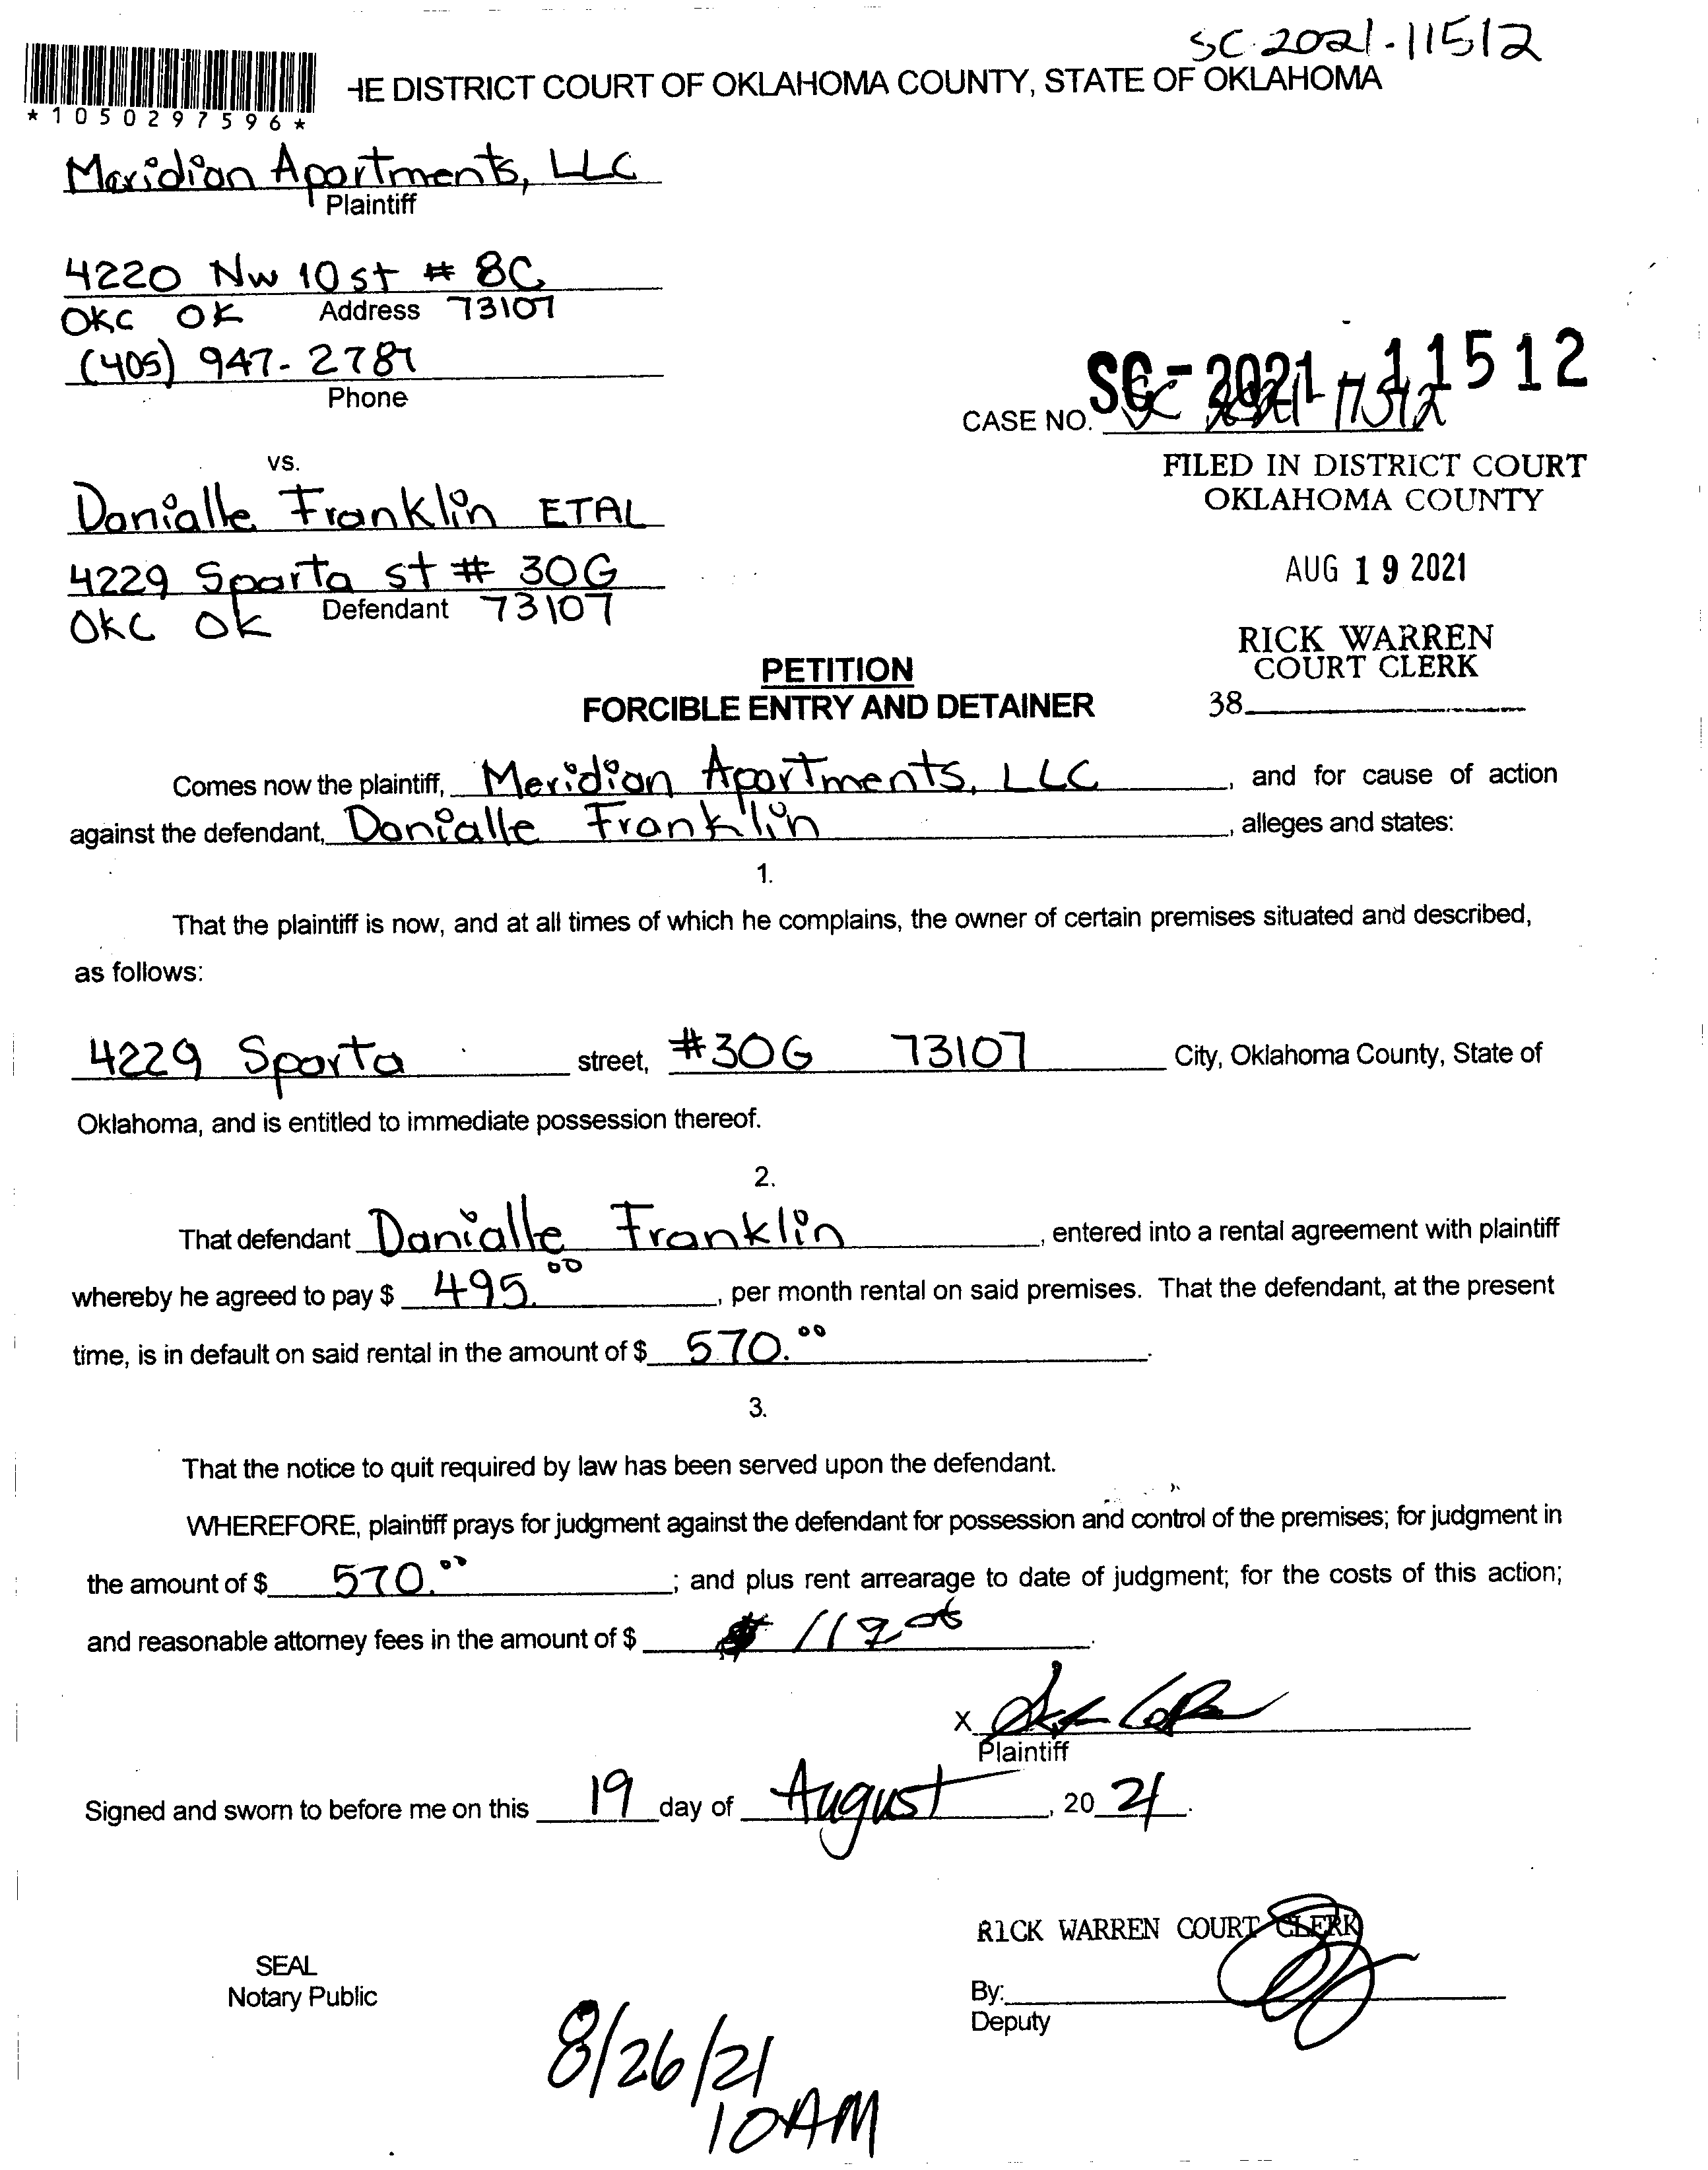 SC-2021-11512
*1050297596*
HE DISTRICT COURT OF OKLAHOMA COUNTY, STATE OF OKLAHOMA
Meridian Apartments, LLC
Plaintiff
4220 NW 10 st # 8C
OKC OK Address 73107
(405) 947-2787
Phone
SC-2021-11512
CASE NO. SC 2021-11512
vs.
FILED IN DISTRICT COURT
OKLAHOMA COUNTY
Danialle Franklin ETAL
4229 Sparta st # 30G
AUG 19 2021
OKC OK Defendant 73107
RICK WARREN
COURT CLERK
PETITION
38
FORCIBLE ENTRY AND DETAINER
Comes now the plaintiff, Meridian Apartments, LLC, and for cause of action
against the defendant, Danialle Franklin, alleges and states:
1.
That the plaintiff is now, and at all times of which he complains, the owner of certain premises situated and described,
as follows:
4229 Sparta street, #30G 73107 City, Oklahoma County, State of
Oklahoma, and is entitled to immediate possession thereof.
2.
That defendant Danialle Franklin, entered into a rental agreement with plaintiff
whereby he agreed to pay $ 495.00, per month rental on said premises. That the defendant, at the present
time, is in default on said rental in the amount of $ 570.00.
3.
That the notice to quit required by law has been served upon the defendant.
WHEREFORE, plaintiff prays for judgment against the defendant for possession and control of the premises; for judgment in
the amount of $ 570.00; and plus rent arrearage to date of judgment; for the costs of this action;
and reasonable attorney fees in the amount of $
X
Plaintiff
Signed and sworn to before me on this 19 day of August, 2021.
RICK WARREN COURT CLERK
SEAL
Notary Public
By:
Deputy
8/26/21
10AM